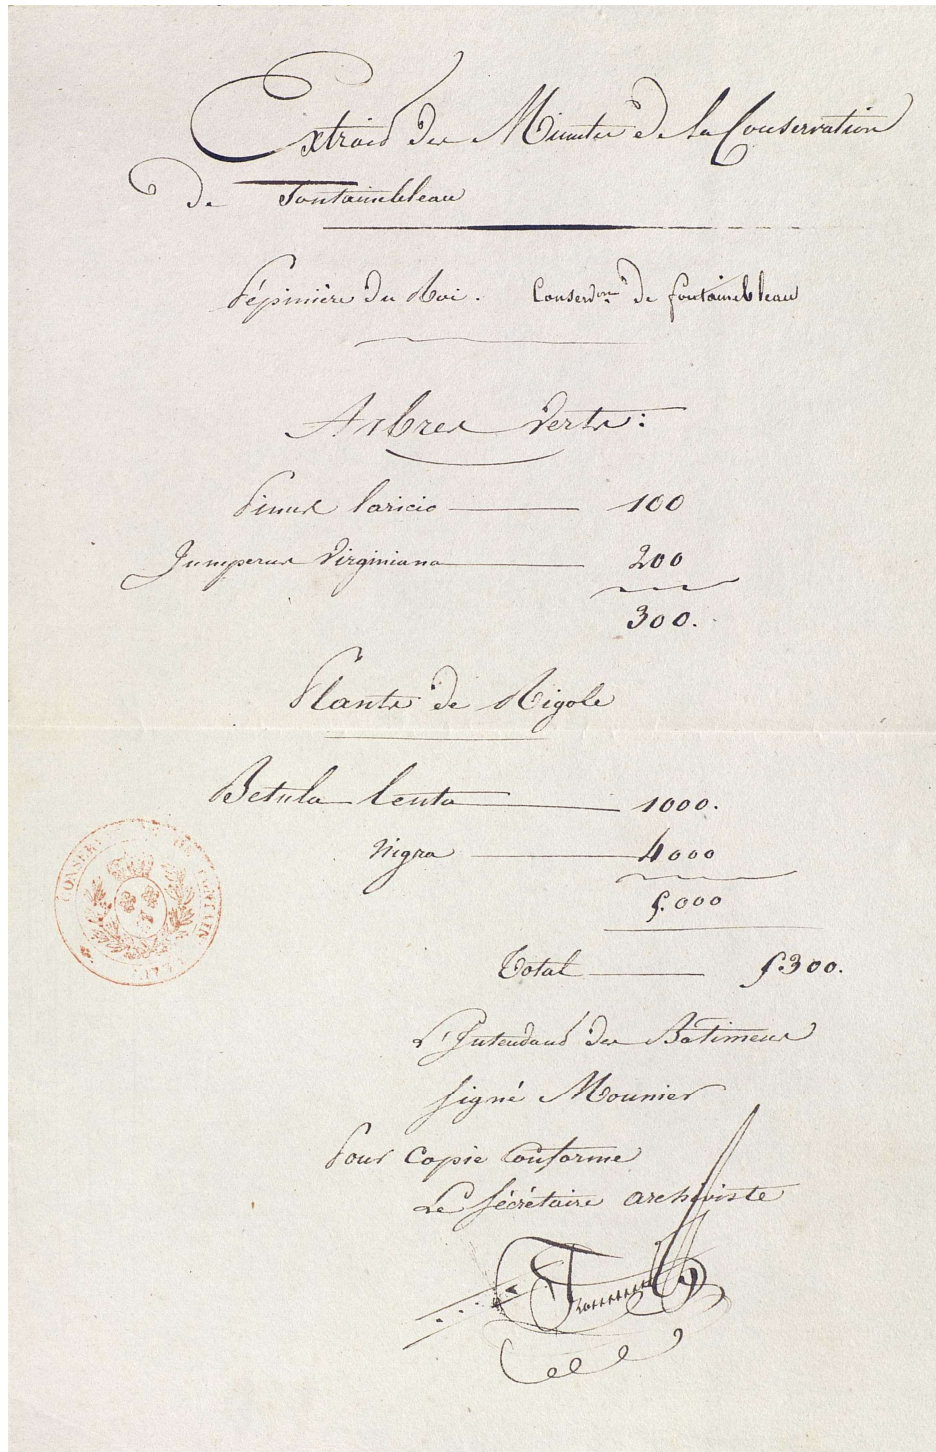 Extrait des Minutes de la Conservation
de Fontainebleau
Pépinière du Roi. Conserv.on de fontainebleau
Arbres verts:
Pinus laricio 100
Juniperus Virginiana 200
300.
Plants de Rigole
Betula lenta 1000.
Nigra 4000
5.000
Total 5.300.
L'Intendant des Bâtimens
signé Mounier
Pour copie conforme
Le sécrétaire archiviste